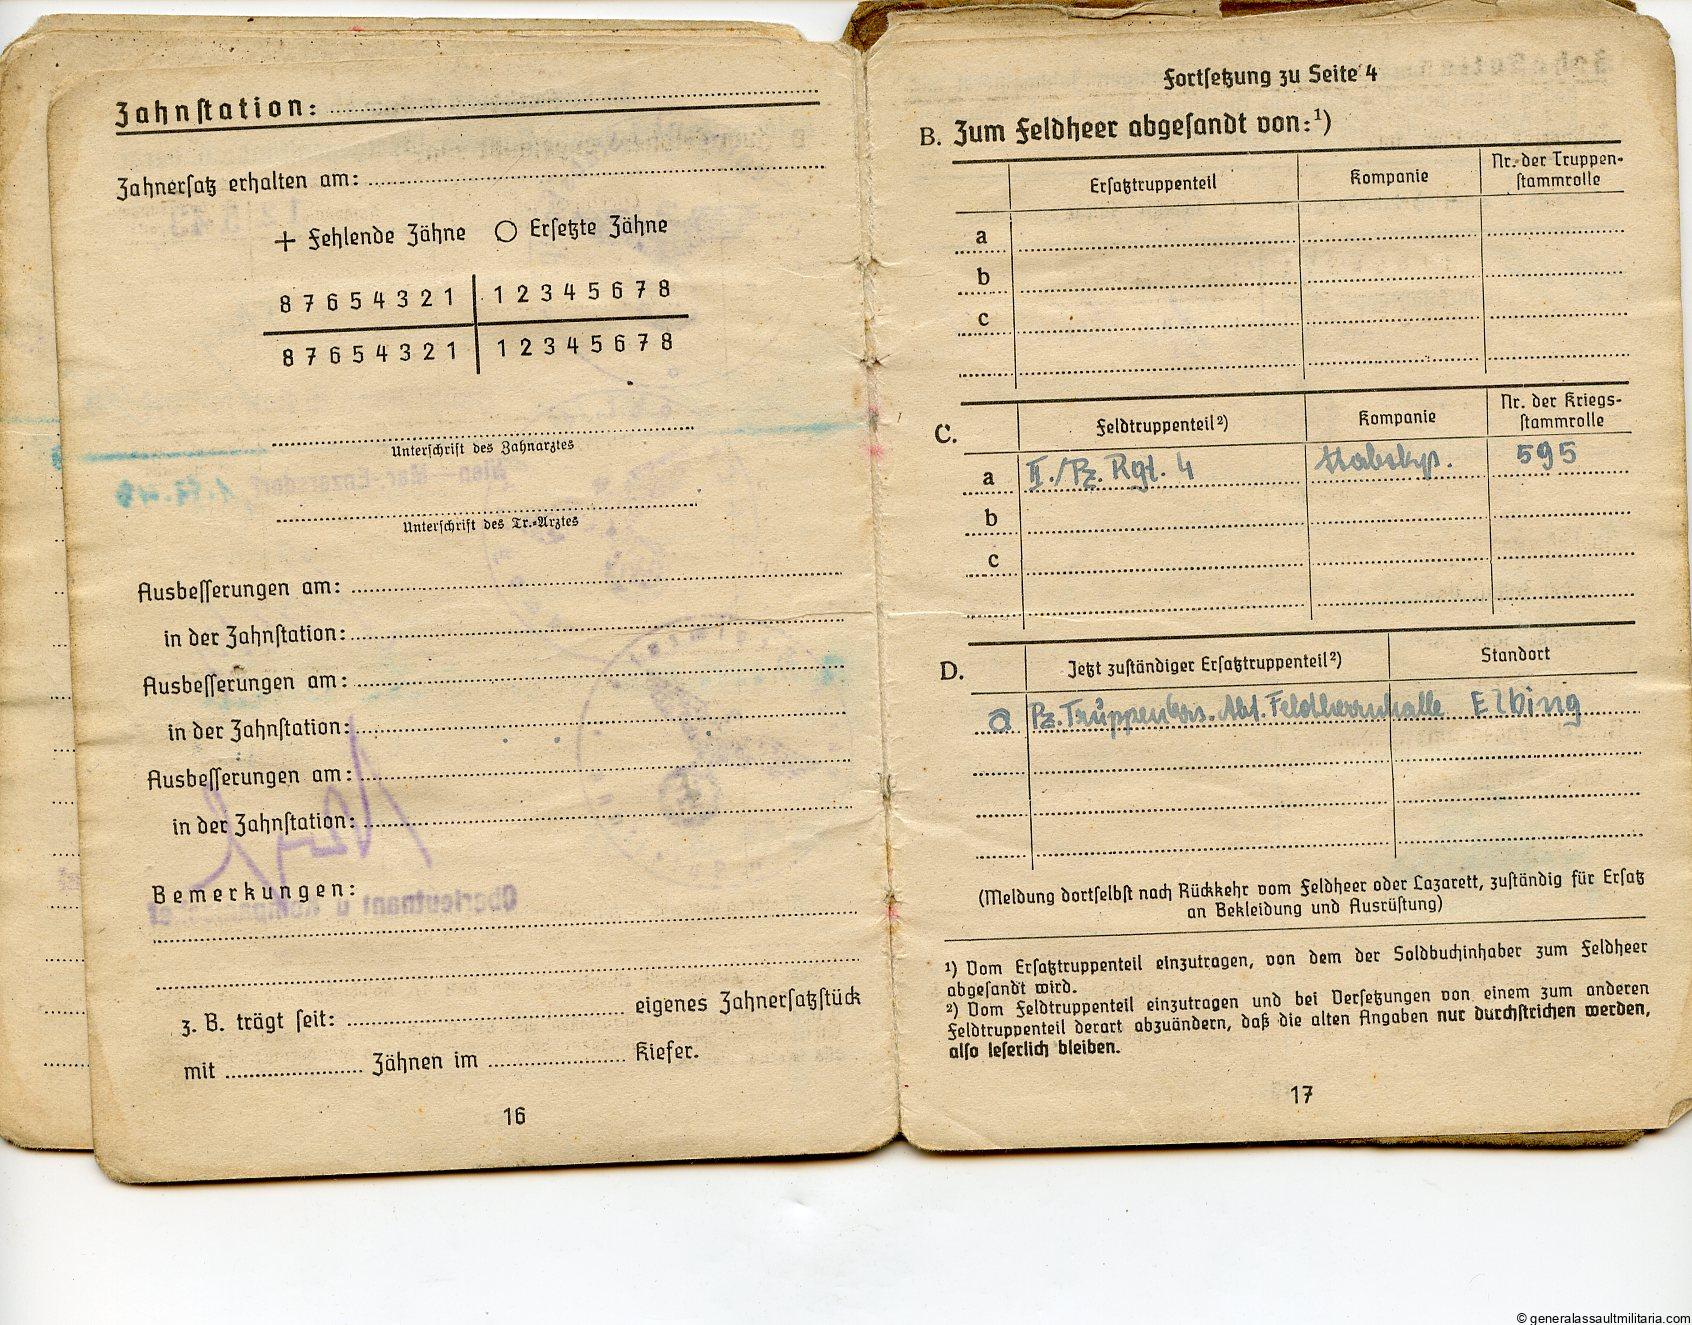 Zahnstation:
Zahnersatz erhalten am:
+ Fehlende Zähne ○ Ersetzte Zähne
8 7 6 5 4 3 2 1 | 1 2 3 4 5 6 7 8
8 7 6 5 4 3 2 1 | 1 2 3 4 5 6 7 8
Unterschrift des Zahnarztes
Unterschrift des Tr.-Arztes
Ausbesserungen am:
in der Zahnstation:
Ausbesserungen am:
in der Zahnstation:
Ausbesserungen am:
in der Zahnstation:
Bemerkungen:
z. B. trägt seit: eigenes Zahnersatzstück
mit Zähnen im Kiefer.
16
Fortsetzung zu Seite 4
B. Zum Feldheer abgesandt von:¹)
Ersatztruppenteil Kompanie Nr. der Truppen-
stammrolle
a
b
c
C. Feldtruppenteil²) Kompanie Nr. der Kriegs-
stammrolle
a II./Pz. Rgt. 4 Stabskp. 595
b
c
D. Jetzt zuständiger Ersatztruppenteil²) Standort
a Pz. Truppen Ers. Abt. Feldherrnhalle Elbing
(Meldung dortselbst nach Rückkehr vom Feldheer oder Lazarett, zuständig für Ersatz
an Bekleidung und Ausrüstung)
¹) Vom Ersatztruppenteil einzutragen, von dem der Soldbuchinhaber zum Feldheer
abgesandt wird.
²) Vom Feldtruppenteil einzutragen und bei Versetzungen von einem zum anderen
Feldtruppenteil derart abzuändern, daß die alten Angaben nur durchstrichen werden,
also leserlich bleiben.
17
© generalassaultmilitaria.com